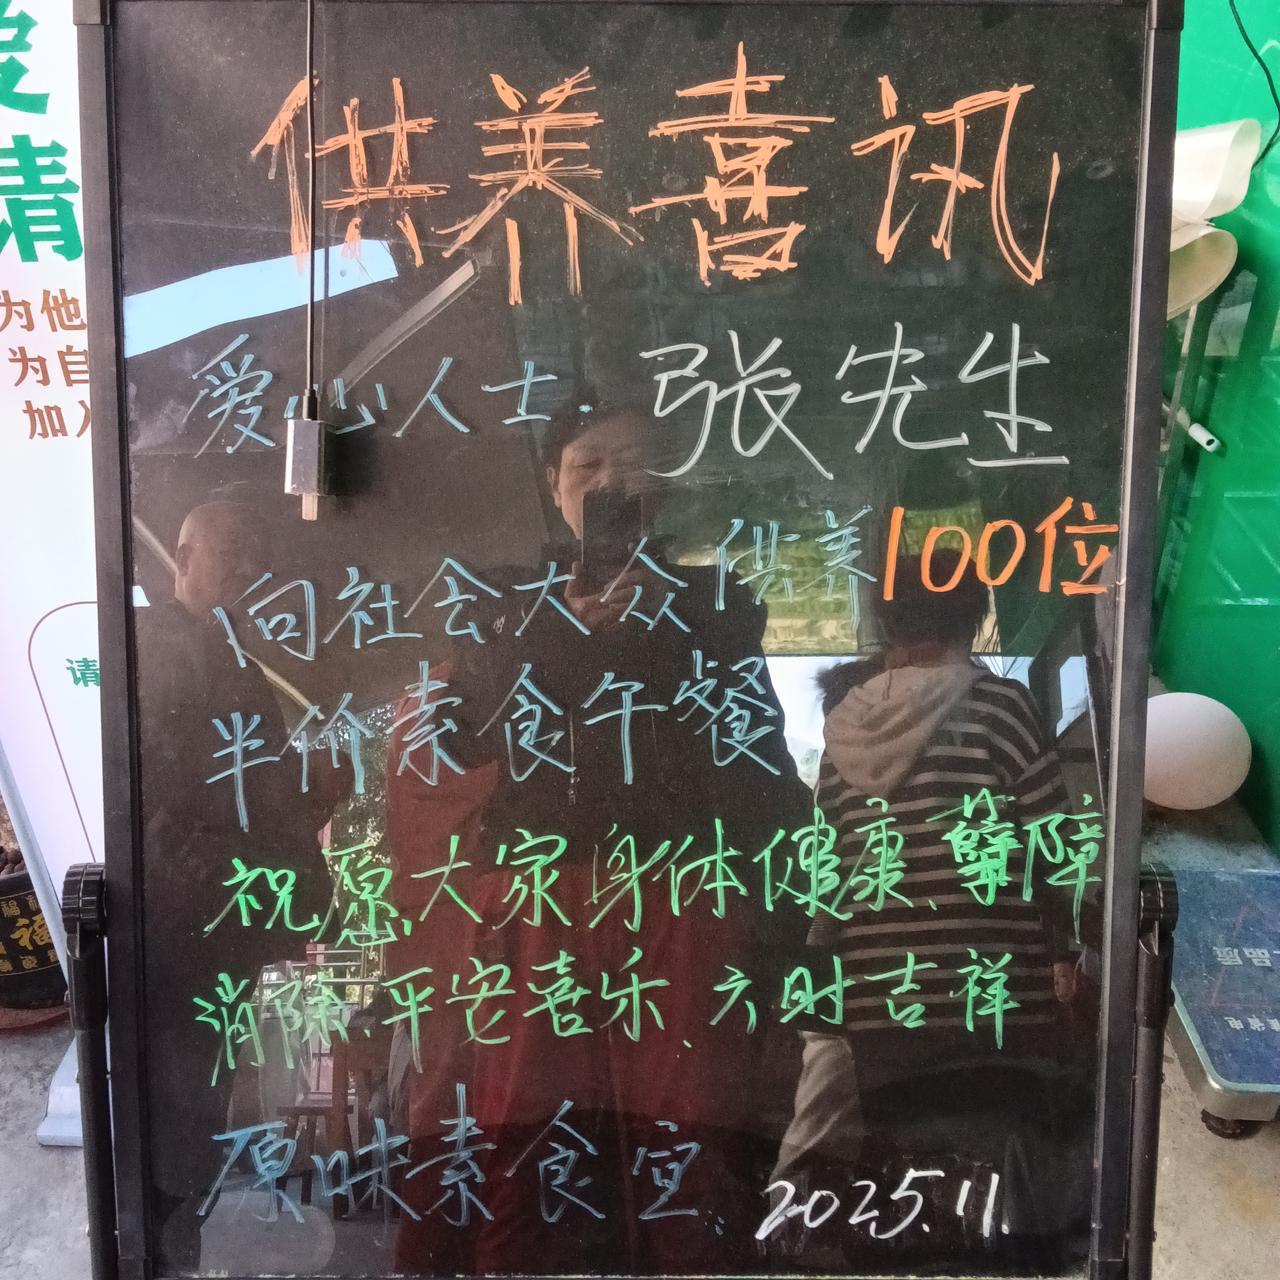 供养喜讯
爱心人士. 张先生
向社会大众供养100位
半价素食午餐
祝愿大家身体健康、孽障
消除、平安喜乐、六时吉祥
原味素食宜.
2025.11.
为他
为自
加入
请
福
品质
省电